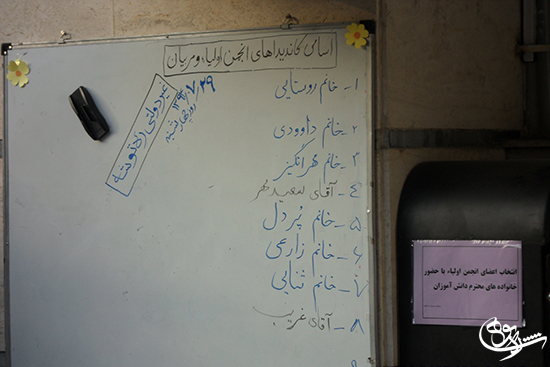 اسامی کاندیداهای انجمن اولیاء و مربیان
غیردولتی ره توشه
۱۳۹۴/۷/۲۹
روز چهارشنبه
۱- خانم روستایی
۲- خانم داوودی
۳- خانم مهرانگیز
۴- آقای سعیدمهر
۵- خانم پُردل
۶- خانم زارعی
۷- خانم ثنایی
۸- آقای غریب
انتخاب اعضای انجمن اولیاء با حضور
خانواده های محترم دانش آموزان